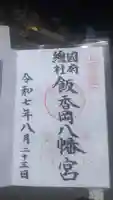 國府
總社
飯香岡八幡宮
令和七年八月二十三日